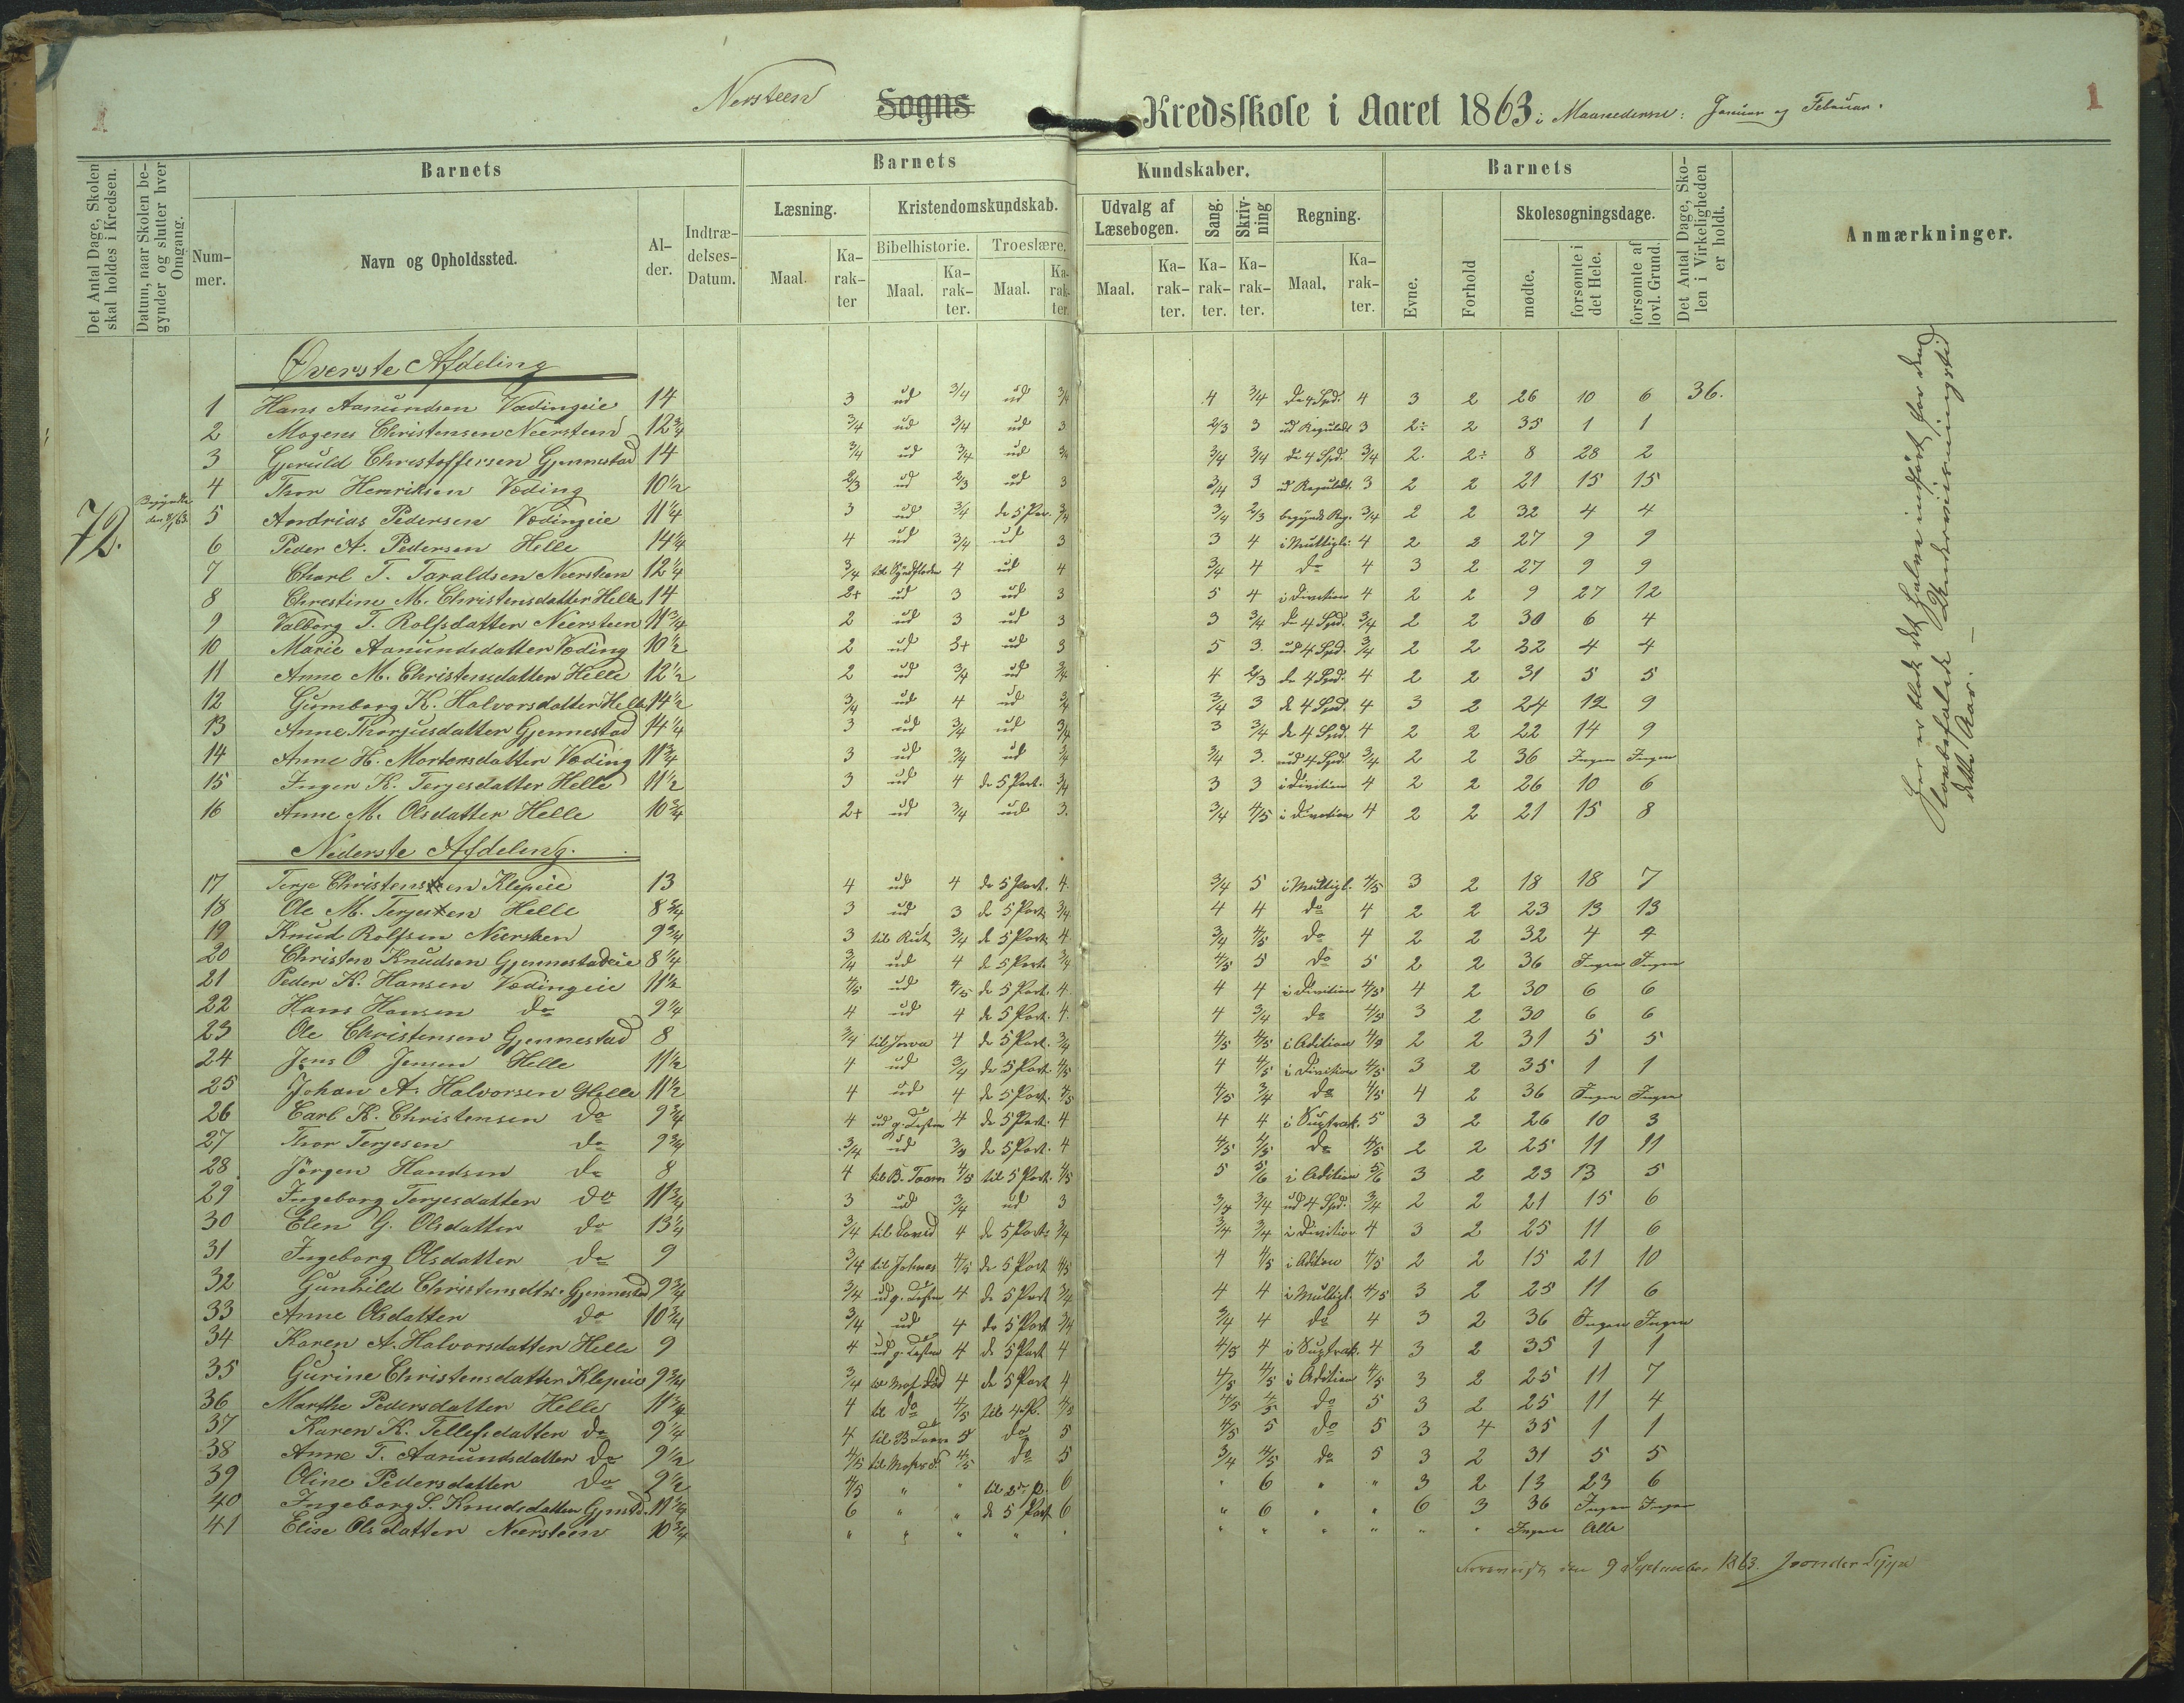 1
Nersteen Sogns Kredsskole i Aaret 1863 i Maanederne: Januar og Februar.
1
Det Antal Dage, Skolen skal holdes i Kredsen.
Datum, naar Skolen begynder og slutter hver Omgang.
Barnets
Nummer.
Navn og Opholdssted.
Alder.
Indtrædelses-Datum.
Barnets Kundskaber.
Læsning.
Maal.
Karakter
Kristendomskundskab.
Bibelhistorie.
Maal.
Karakter.
Troeslære.
Maal.
Karakter.
Udvalg af Læsebogen.
Maal.
Karakter.
Sang.
Karakter.
Skrivning
Karakter.
Regning.
Maal.
Karakter.
Barnets
Evne.
Forhold
Skolesøgningsdage.
mødte.
forsømte i det Hele.
forsømte af lovl. Grund.
Det Antal Dage, Skolen i Virkeligheden er holdt.
Anmærkninger.
72.
Begyndte den 8/1 63
Øverste Afdeling
1 Hans Aanundsen Vædingeie 14 3 ud 3/4 ud 3/4 4 3/4 de 4 Spd. 4 3 2 26 10 6 36.
2 Mogens Christensen Neersteen 12 3/4 3/4 ud 3/4 ud 3 2/3 3 ud Reguladt 3 2÷ 2 35 1 1
3 Gjeruld Christoffersen Gjennestad 14 3/4 ud 3/4 ud 3/4 3/4 3/4 de 4 Spd. 3/4 2. 2÷ 8 28 2
4 Thor Henriksen Væding 10 1/2 2/3 ud 2/3 ud 3 3/4 3 ud Reguladt. 3 2 2 21 15 15
5 Andrias Pedersen Vædingeie 11 1/4 3 ud 3/4 de 5 Par. 3/4 3/4 2/3 begynd Reg. 3/4 2 2 32 4 4
6 Peder A. Pedersen Helle 14 1/4 4 ud 3/4 ud 3 3 4 i Multipli: 4 2 2 27 9 9
7 Charl T. Taraldsen Neersteen 12 1/4 3/4 til Syndfloden 4 ud 4 3/4 4 do 4 3 2 27 9 9
8 Chrestine M. Christensdatter Helle 14 2+ ud 3 ud 3 5 4 i Division 4 2 2 9 27 12
9 Valborg T. Rolfsdatter Neersteen 11 3/4 2 ud 3 ud 3 3 3/4 de 4 Spd. 3/4 2 2 30 6 4
10 Marie Aanundsdatter Væding 10 1/2 2 ud 3+ ud 3 5 3. ud 4 Spd. 3/4 2 2 32 4 4
11 Anne M. Christensdatter Helle 12 1/2 2 ud 3/4 ud 3/4 4 2/3 de 4 Spd. 4 2 2 31 5 5
12 Gumborg K. Halvorsdatter Helle 14 1/2 3/4 ud 4 ud 3/4 3/4 3 de 4 Spd. 4 3 2 24 12 9
13 Anne Thorjusdatter Gjennestad 14 1/4 3 ud 3/4 ud 3/4 3 3/4 de 4 Spd. 4 2 2 22 14 9
14 Anne H. Mortensdatter Væding 11 3/4 3 ud 3/4 ud 3/4 3/4 3. ud 4 Spd. 3/4 2 2 36 Ingen Ingen
15 Inger K. Terjesdatter Helle 11 1/2 3 ud 4 de 5 Part. 3/4 3 3 i Division 4 2 2 26 10 6
16 Anne M. Olsdatter Helle 10 3/4 2+ ud 3/4 ud 3. 3/4 4/5 i Division 4 2 2 21 15 8
Nederste Afdeling.
17 Terje Christensen Klepeie 13 4 ud 4 de 5 Part. 4. 3/4 5 i Multipl. 4/5 3 2 18 18 7
18 Ole M. Terjesen Helle 8 3/4 3 ud 3 de 5 Part. 3/4 4 4 do 4 2 2 23 13 13
19 Knud Rolfsen Neersteen 9 3/4 3 til Rut 3/4 de 5 Part. 4 3/4 4/5 do 4 2 2 32 4 4
20 Christen Knudsen Gjennestadeie 8 1/4 3/4 ud 4 de 5 Part. 3/4 4/5 5 do 5 2 2 36 Ingen Ingen
21 Peder K. Hansen Vædingeie 11 1/2 4/5 ud 4/5 de 5 Part. 4. 4 4 i Division 4/5 4 2 30 6 6
22 Hans Hansen do 9 1/4 4 ud 4 de 5 Part. 4. 4 3/4 do 4/5 3 2 30 6 6
23 Ole Christensen Gjennestad 8 3/4 4 de 5 Part. 3/4 4/5 4/5 i Adition 4/5 2 2 31 5 5
24 Jens O Jensen Helle 11 1/2 4 ud 3/4 de 5 Part. 4/5 4 4/5 i Division 4/5 3 2 35 1 1
25 Johan A. Halvorsen Helle 11 1/2 4 ud 4 de 5 Part. 4/5 4/5 3/4 do 4/5 4 2 36 Ingen Ingen
26 Carl K. Christensen do 9 3/4 4 ud g. Testm 4 de 5 Part. 4 4 4 i Suptrak. 5 3 2 26 10 3
27 Thor Terjesen do 9 3/4 3/4 ud 3/4 de 5 Part. 4 4/5 4/5 do 4/5 2 2 25 11 11
28 Jörgen Handsen do 8 4 til B. Taarn 4/5 til 5 Part. 4/5 5 5/6 i Adition 5/6 3 2 23 13 5
29 Ingeborg Terjesdatter do 11 3/4 3 ud 3/4 ud 3 3/4 3/4 ud 4 Spd. 3/4 2 2 21 15 6
30 Elen G. Olsdatter do 13 1/4 3/4 til David 4 de 5 Part. 3/4 3/4 3/4 i Division 4 3 2 25 11 6
31 Ingeborg Olsdatter do 9 3/4 til Johnas 4/5 de 5 Part 4/5 4 4/5 i Adition 4/5 2 2 15 21 10
32 Gunhild Christensdtr. Gjennestad 9 3/4 3/4 ud g. Testm 4 de 5 Part 3/4 4 4 i Multipl. 4/5 3 2 25 11 6
33 Anne Olsdatter do 10 3/4 3/4 ud 4 de 5 Part 3/4 3/4 4 do 4 3 2 36 Ingen Ingen
34 Karen A. Halvorsdatter Helle 9 4 ud g. Testm 4 de 5 Part 4 4/5 4 i Suptrak. 4 3 2 35 1 1
35 Gurine Christensdatter Klepeie 9 3/4 3/4 til Mos. Død 4 de 5 Part 4 4/5 4/5 i Adition 4/5 3 2 25 11 7
36 Marthe Pedersdatter Helle 11 3/4 4 til do 4/5 til 4 P. 4/5 4/5 4/5 do 5 3 2 25 11 4
37 Karen K. Tellefsdatter do 9 1/4 4 til B Taarn 5 do 5 4/5 5 do 5 3 4 35 1 1
38 Anne T. Aanundsdatter do 9 1/2 4/5 til Moses F. 4/5 do 5 3/4 4/5 do 5 3 2 31 5 5
39 Oline Pedersdatter do 9 1/2 4/5 " " til 2den P. 6 " 6 " " 3 2 13 23 6
40 Ingeborg S. Knudsdatter Gjenstd. 11 3/4 6 " " de 5 Part 6 " 6 " " 6 3 36 Ingen Ingen
41 Elise Olsdatter Neersteen 10 3/4 " " " " " " " " " " " Ingen Alle
Her er blot det halve indført for den lovbefalede Underviisningstid dette Aar. —
den 9 September 1863.